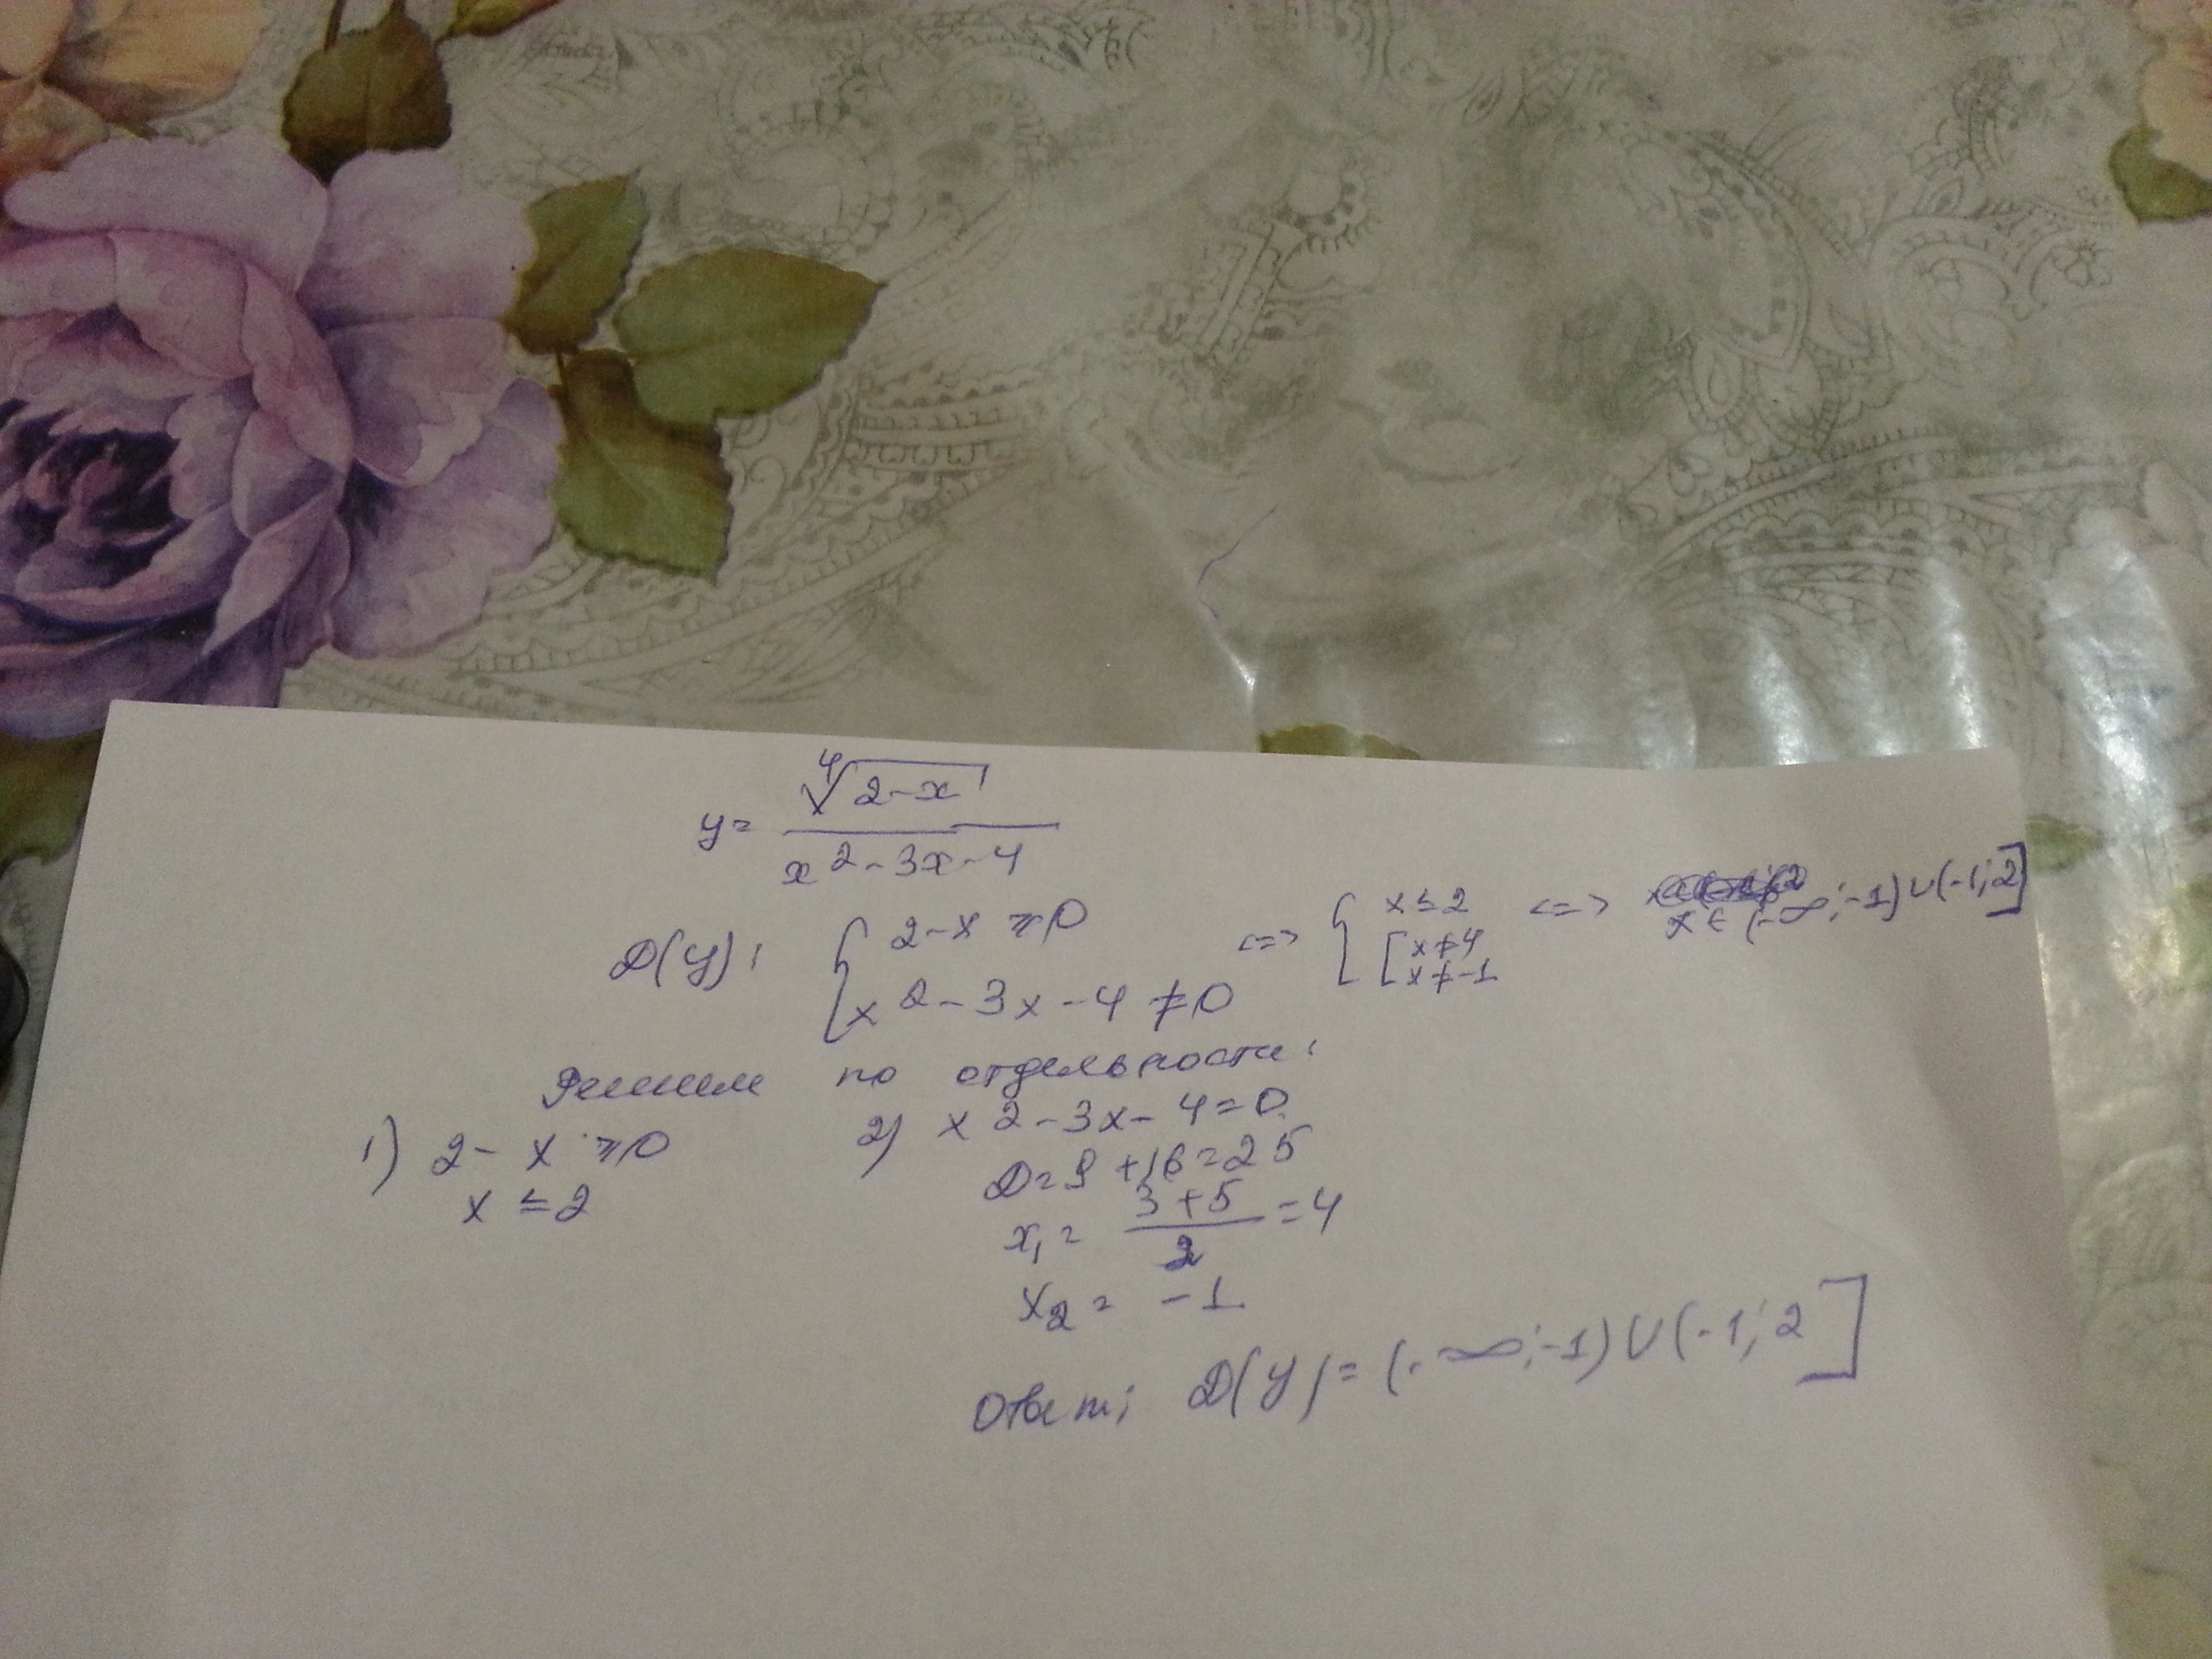 y = ⁴√(2-x) / (x²-3x-4)
D(y): { 2-x ≥ 0 ; x²-3x-4 ≠ 0 <=> { x ≤ 2 ; [ x ≠ 4 ; x ≠ -1 <=> x ∈ (-∞;-1)∪(-1;2]
Решим по отдельности:
1) 2 - x ≥ 0 2) x²-3x-4=0
x ≤ 2 D=9+16=25
x₁ = (3+5)/2 = 4
x₂ = -1
Ответ: D(y)=(-∞;-1)∪(-1;2]